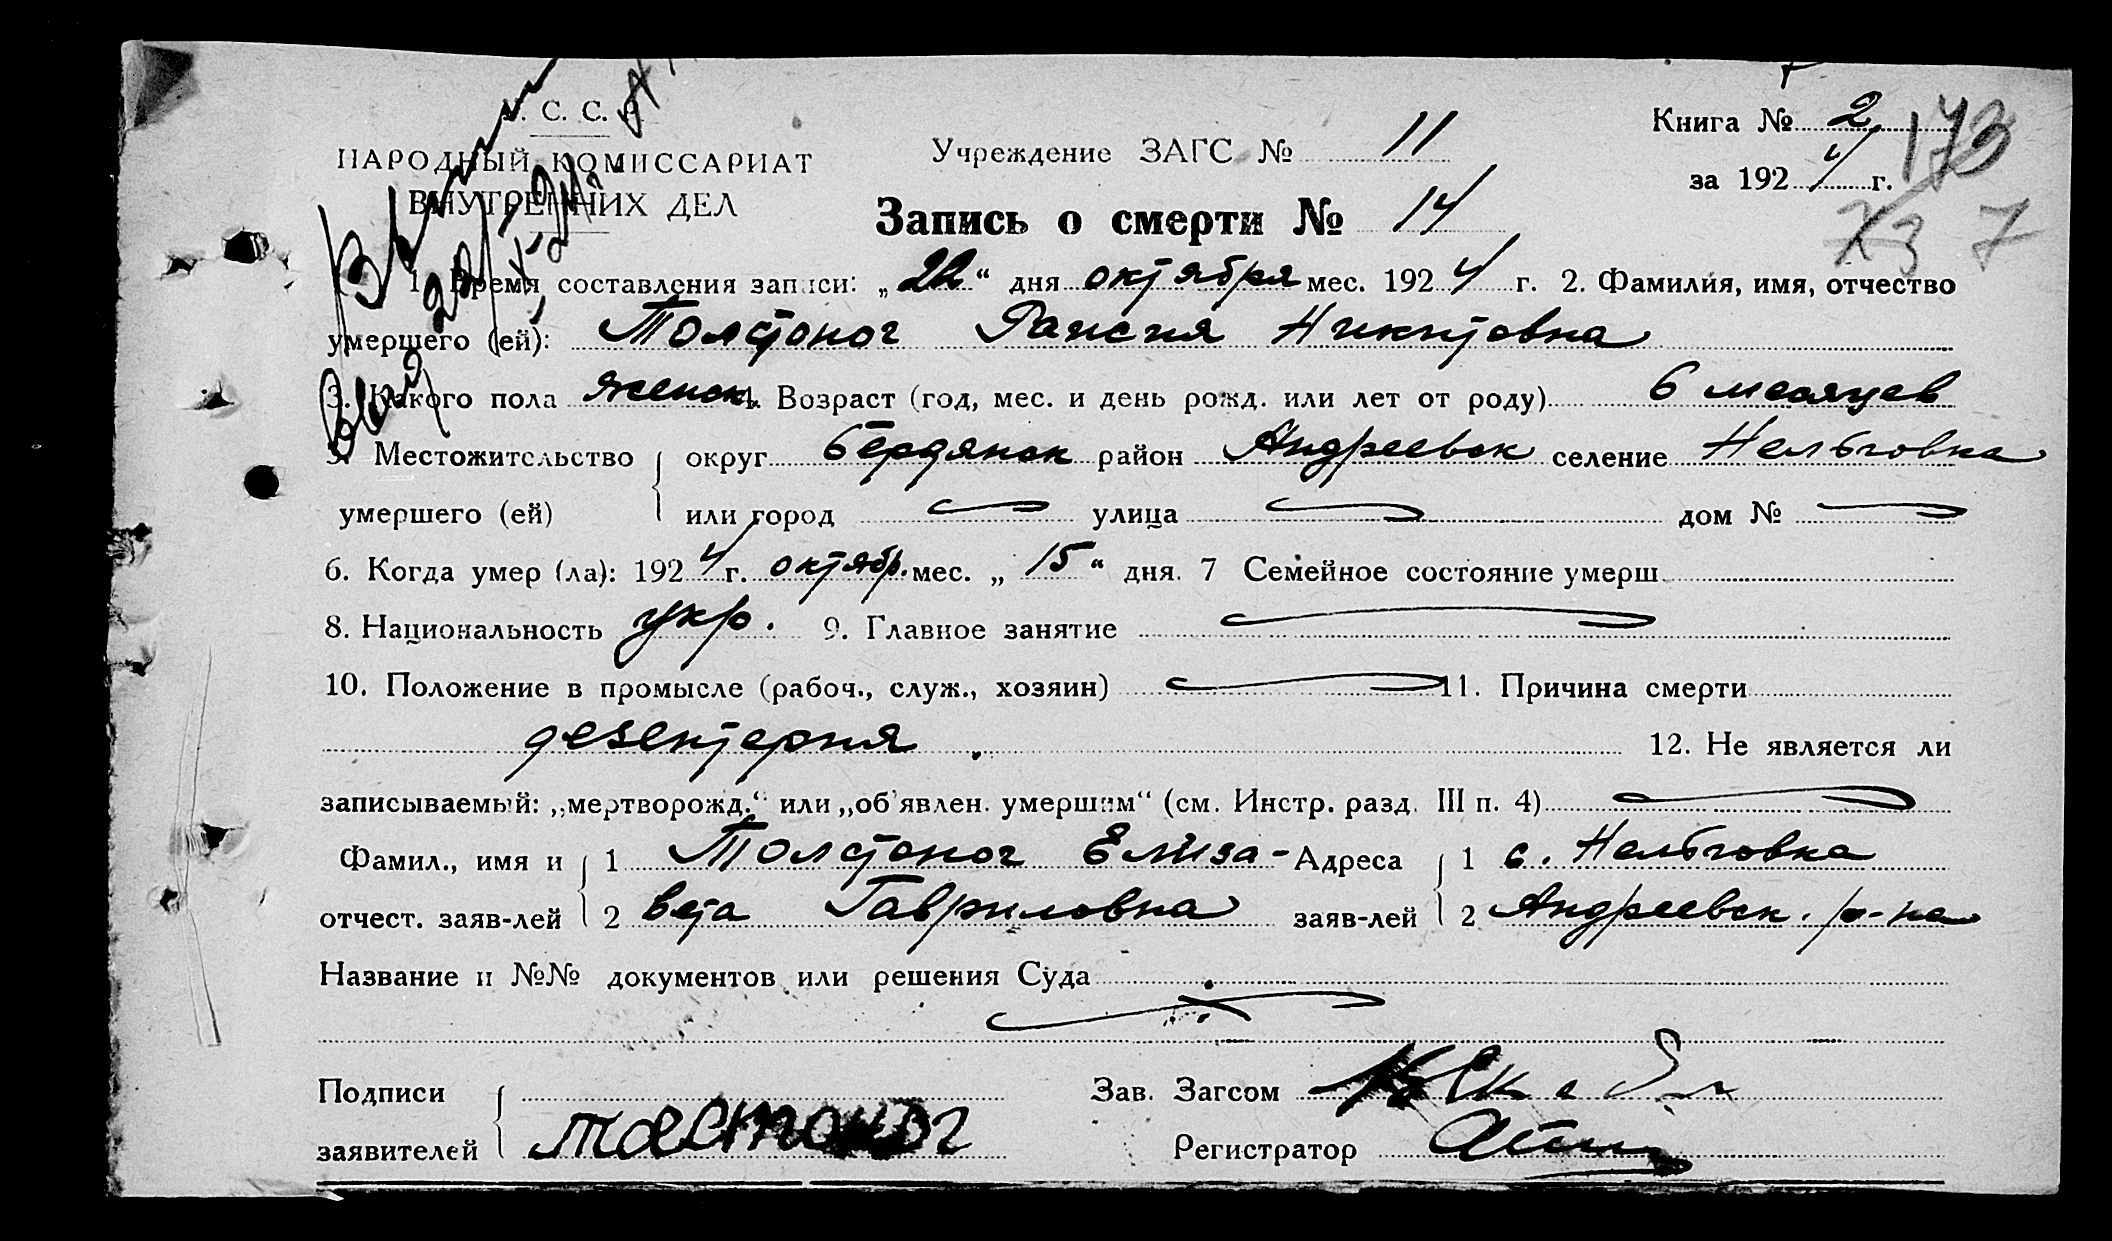 У. С. С. Р.
НАРОДНЫЙ КОМИССАРИАТ
ВНУТРЕННИХ ДЕЛ
Учреждение ЗАГС № 11
Книга № 2
за 1924 г.
173
73 7
Запись о смерти № 14
1. Время составления записи: „22“ дня октября мес. 1924 г. 2. Фамилия, имя, отчество
умершего (ей): Толстоног Раисия Никитовна
3. Какого пола женск. 4. Возраст (год, мес. и день рожд. или лет от роду) 6 месяцев
5. Местожительство округ Бердянск район Андреевск селение Нельговка
умершего (ей) или город улица дом №
6. Когда умер (ла): 1924 г. октябр. мес. „15“ дня. 7 Семейное состояние умерш.
8. Национальность укр. 9. Главное занятие
10. Положение в промысле (рабоч., служ., хозяин) 11. Причина смерти
дезентерия. 12. Не является ли
записываемый: „мертворожд.“ или „об'явлен. умершим“ (см. Инстр. разд. III п. 4)
Фамил., имя и 1 Толстоног Елиза- Адреса 1 с. Нельговка
отчест. заяв-лей 2 вета Гавриловна заяв-лей 2 Андреевск. р-на
Название и №№ документов или решения Суда
Подписи Зав. Загсом
заявителей Толстоног Регистратор